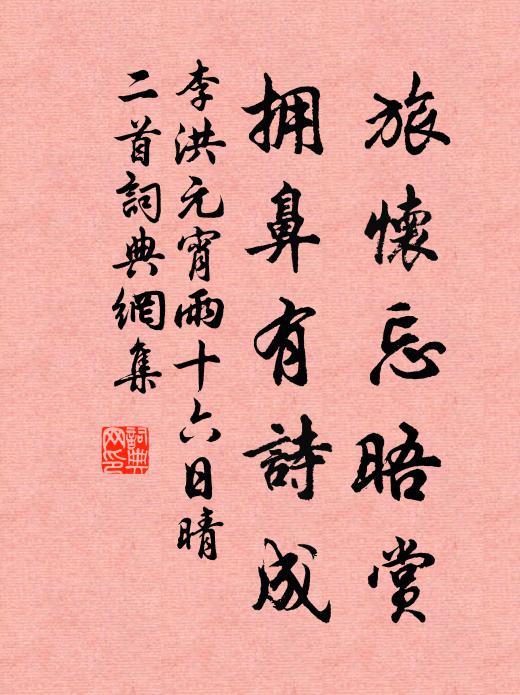 旅懷忘晤賞
拥鼻有詩成
李洪元宵雨十六日晴
二首詞典網集
詞典网印